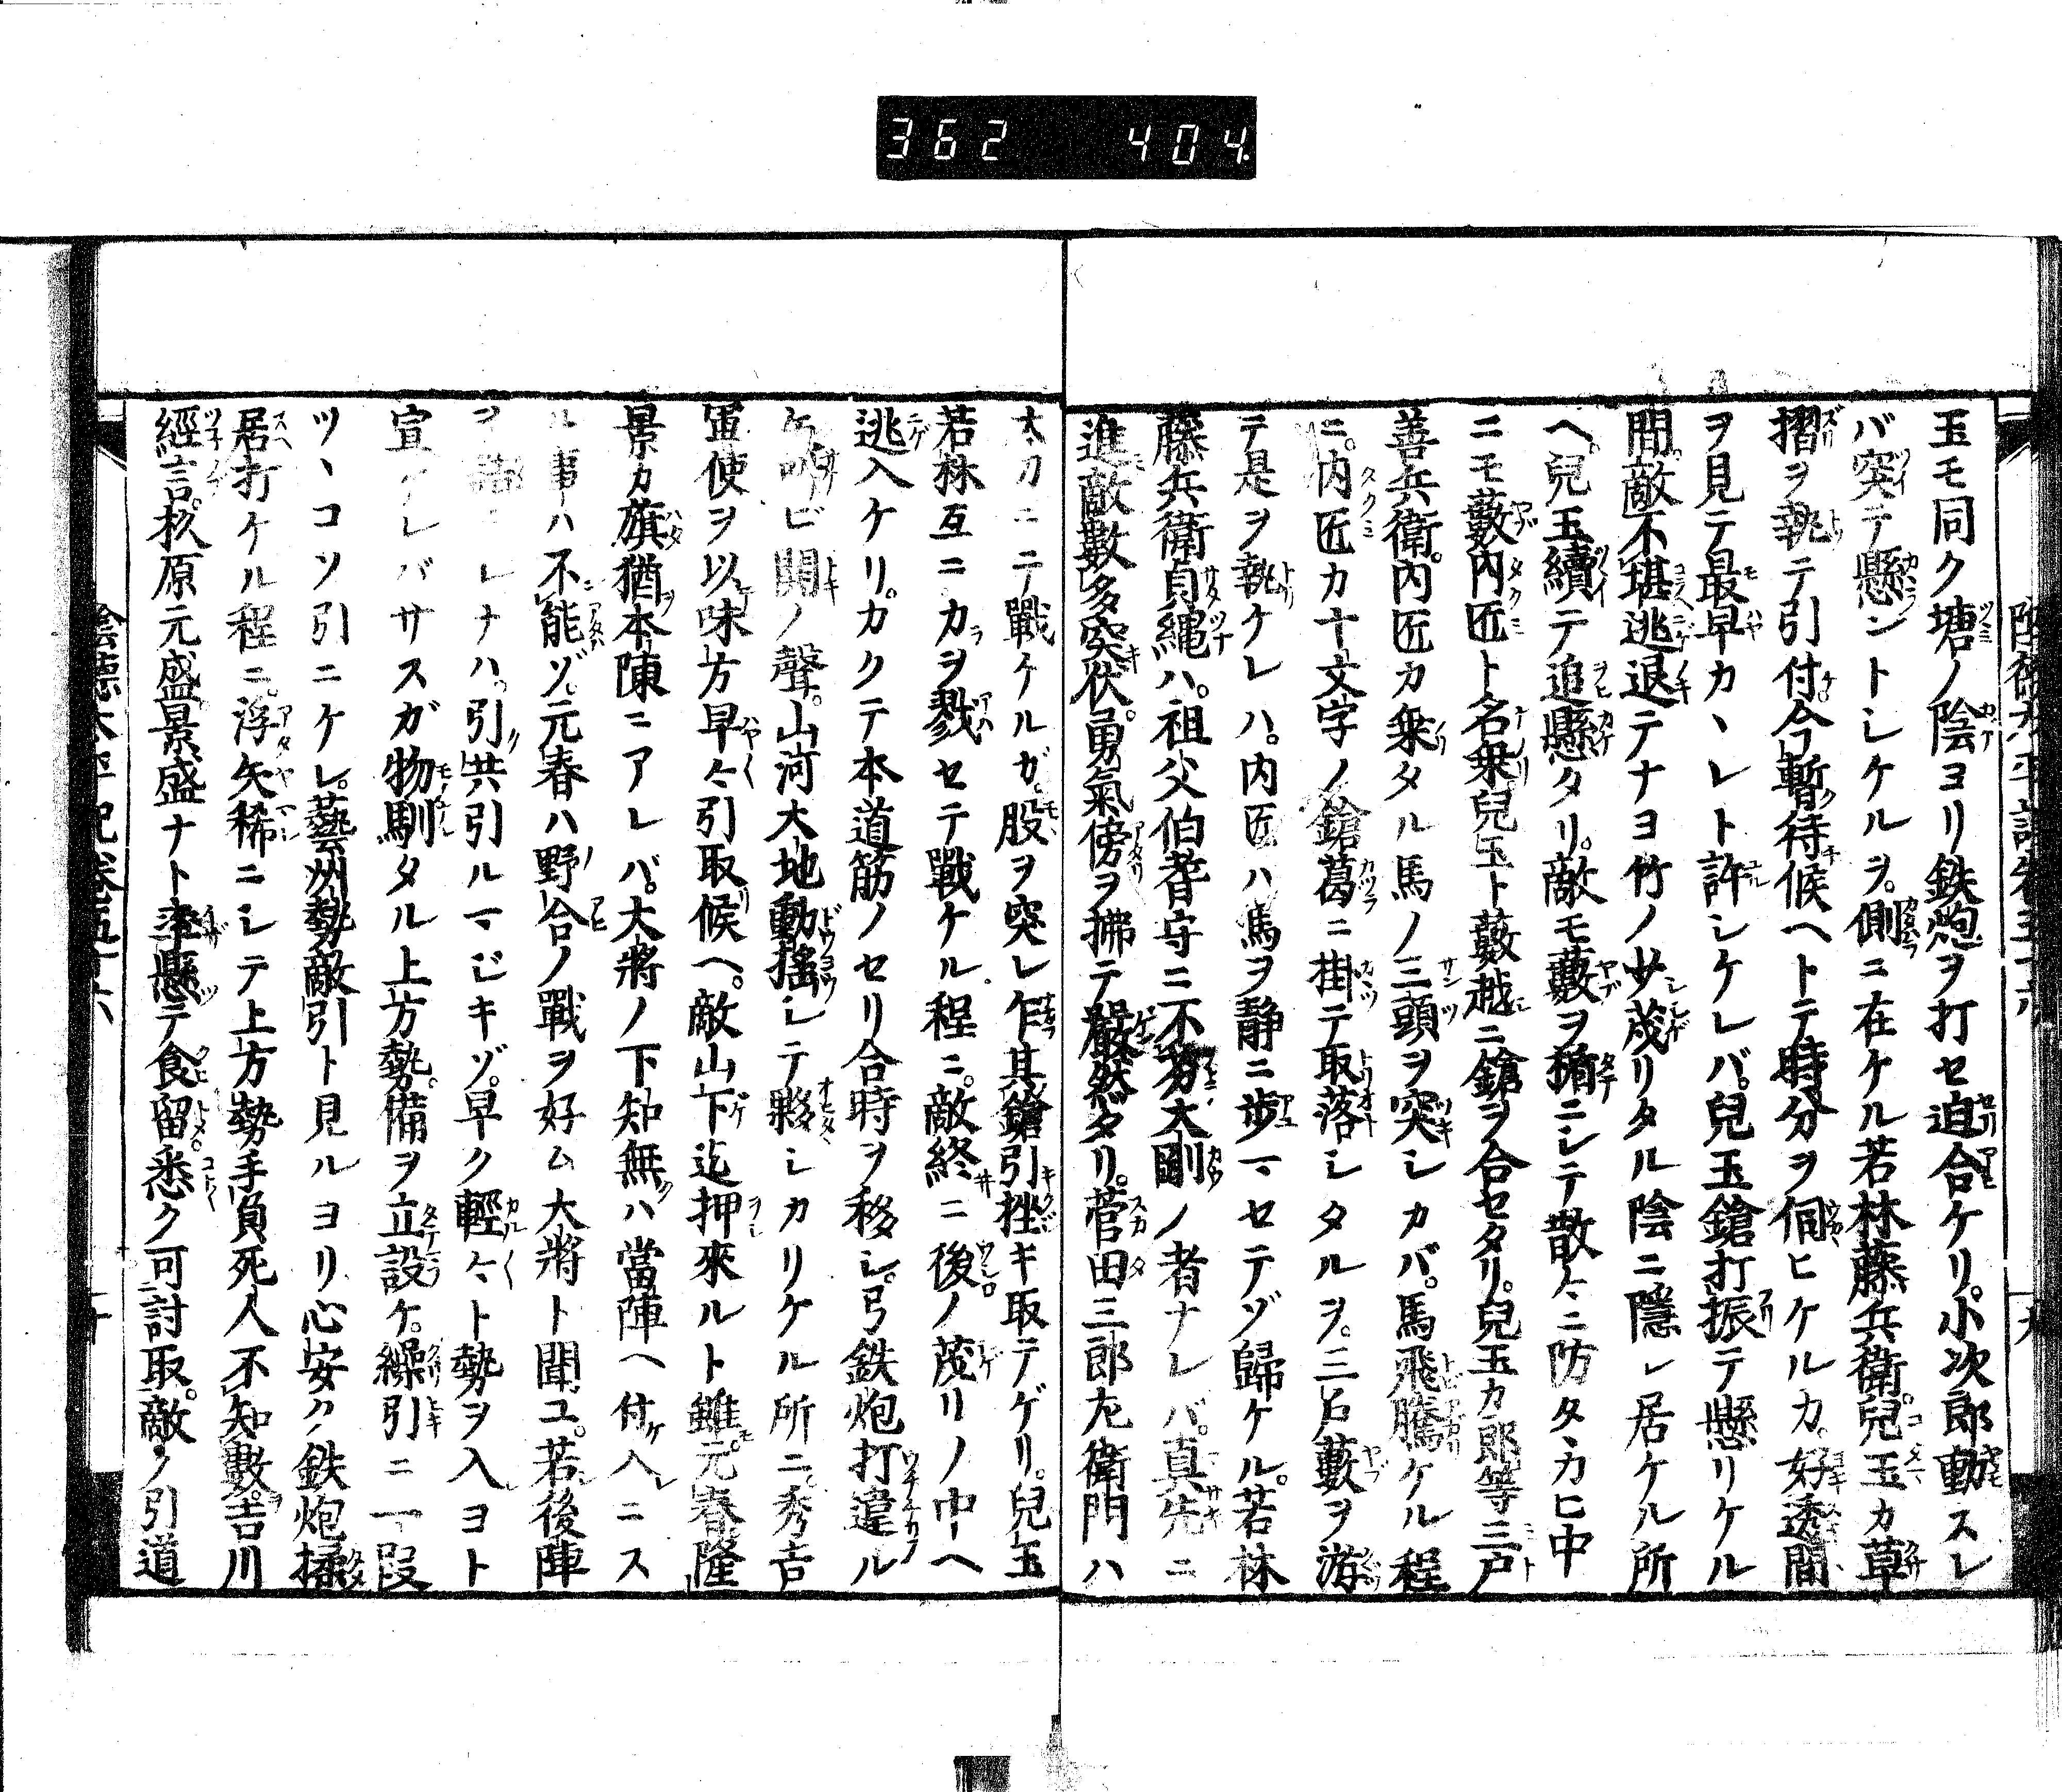 362 404
玉モ同ク塘ノ陰ヨリ鉄炮ヲ打セ迫合ケリ。小次郎動スレ
バ突テ懸ントシケルヲ。側ニ在ケル若林藤兵衛。兒玉カ草
摺ヲ執テ引付。今暫待候ヘトテ時分ヲ伺ヒケルカ。好透間
ヲ見テ最早カヽレト許シケレバ。兒玉鎗打振テ懸リケル
間。敵不堪逃退テナヨ竹ノ茂リタル陰ニ隱レ居ケル所
ヘ。兒玉續テ追懸タリ。敵モ藪ヲ楯ニシテ散々ニ防タヽカヒ中
ニモ藪内匠ト名乗兒玉ト藪越ニ鎗ヲ合セタリ。兒玉カ郎等三戸
善兵衛。内匠カ乗タル馬ノ三頭ヲ突シカバ。馬飛騰ケル程
ニ。内匠カ十文字ノ鎗葛ニ掛テ取落シタルヲ。三戸藪ヲ游
テ是ヲ執ケレハ。内匠ハ馬ヲ静ニ歩マセテゾ歸ケル。若林
藤兵衛貞縄ハ。祖父伯耆守ニ不劣大剛ノ者ナレバ。真先ニ
進敵數多突伏。勇氣傍ヲ拂テ嚴然タリ。菅田三郎左衛門ハ
太刀ニテ戰ケルガ。股ヲ突レ乍其鎗引挫キ取テゲリ。兒玉
若林互ニカヲ戮セテ戰ケル程ニ。敵終ニ後ノ茂リノ中ヘ
逃入ケリ。カクテ本道筋ノセリ合時ヲ移シ。弓鉄炮打違ル
ケ叫ビ閧ノ聲。山河大地動揺シテ夥シカリケル所ニ。秀吉
軍使ヲ以味方早々引取候ヘ。敵山下迄押來ルト雖。元春隆
景カ旗猶本陳ニアレバ。大將ノ下知無ハ當陣ヘ付入ニス
ル事ハ不能ゾ。元春ハ野合ノ戰ヲ好ム大將ト聞ユ。若後陣
ヲ レナハ。引共引ルマジキゾ。早ク輕々ト勢ヲ入ヨト
宣 レバサスガ物馴タル上方勢。備ヲ立設ケ。繰引ニ一段
ツヽコソ引ニケレ。藝州勢敵引ト見ルヨリ心安ク鉄炮
居打ケル程ニ。浮矢稀ニシテ上方勢手負死人不知數。吉川
經言。杉原元盛景盛ナト率懸テ食留悉ク可討取。敵ノ引道
陰徳太平記卷五十六